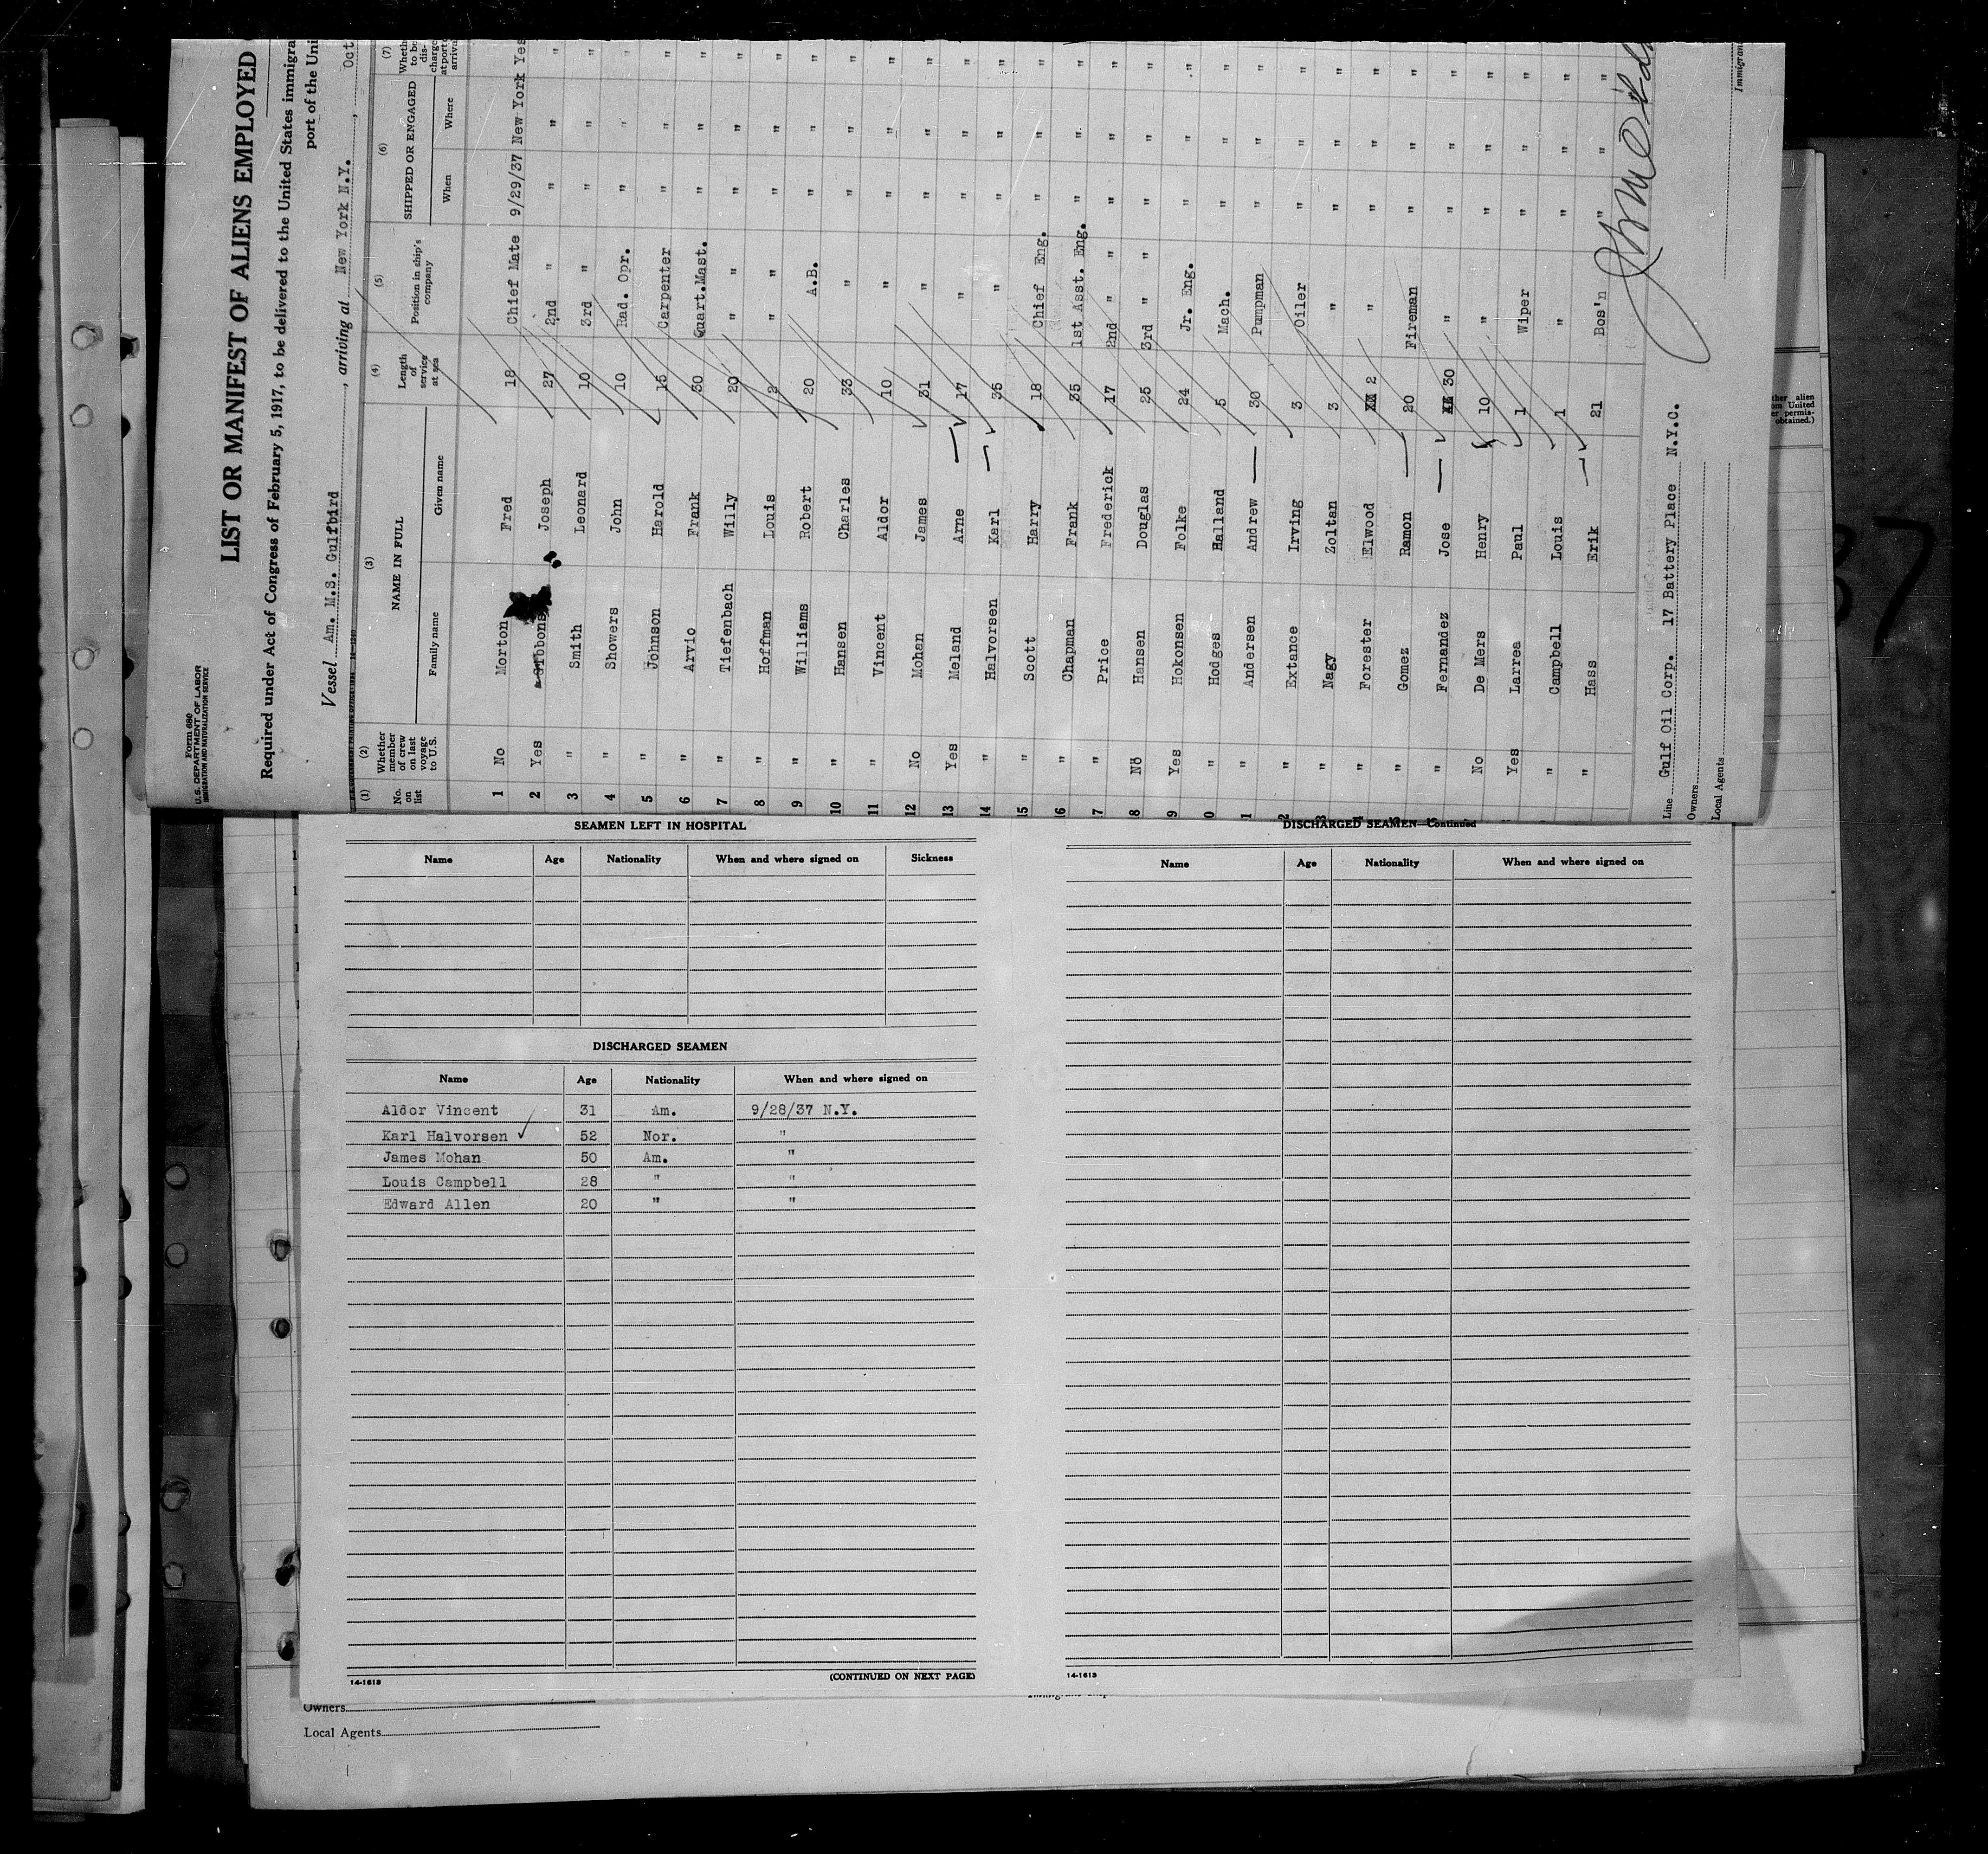 Form 680
U.S. DEPARTMENT OF LABOR
IMMIGRATION AND NATURALIZATION SERVICE
LIST OR MANIFEST OF ALIENS EMPLOYED
Required under Act of Congress of February 5, 1917, to be delivered to the United States immigra
port of the Uni
Vessel Am. M.S. Gulfbird , arriving at New York N.Y. , Oct
(1) (2) (3) (4) (5) (6) (7)
No. on list
Whether member of crew on last voyage to U.S.
NAME IN FULL
Family name Given name
Length of service at sea
Position in ship's company
SHIPPED OR ENGAGED
When Where
Wheth to be dis- charge at port arrival
1 No Morton Fred 18 Chief Mate 9/29/37 New York Yes
2 Yes Gibbons Joseph 27 2nd " " " "
3 " Smith Leonard 10 3rd " " " "
4 " Showers John 10 Rad. Opr. " " "
5 " Johnson Harold 15 Carpenter " " "
6 " Arvio Frank 30 Quart.Mast. " " "
7 " Tiefenbach Willy 20 " " " "
8 " Hoffman Louis 2 " " " "
9 " Williams Robert 20 A.B. " " "
10 " Hansen Charles 33 " " " "
11 " Vincent Aldor 10 " " " "
12 No Mohan James 31 " " " "
13 Yes Meland Arne 17 " " " "
14 " Halvorsen Karl 35 " " " "
15 " Scott Harry 18 Chief Eng. " " "
16 " Chapman Frank 35 1st Asst. Eng. " " "
7 " Price Frederick 17 2nd " " " " "
8 No Hansen Douglas 25 3rd " " " " "
9 Yes Hokonsen Folke 24 Jr. Eng. " " "
0 " Hodges Halland 5 Mach. " " "
1 " Andersen Andrew 30 Pumpman " " "
2 " Extance Irving 3 Oiler " " "
3 " Nagy Zoltan 3 " " " "
" Forester Elwood 2 " " " "
" Gomez Ramon 20 Fireman " " "
" Fernandez Jose 30 " " " "
No De Mers Henry 10 " " " "
Yes Larrea Paul 1 Wiper " " "
" Campbell Louis 1 " " " "
" Hass Erik 21 Bos'n " " "
Line Gulf Oil Corp. 17 Battery Place N.Y.C.
Owners
Local Agents
Immigran
SEAMEN LEFT IN HOSPITAL
Name Age Nationality When and where signed on Sickness
DISCHARGED SEAMEN
Name Age Nationality When and where signed on
Aldor Vincent 31 Am. 9/28/37 N.Y.
Karl Halvorsen ✓ 52 Nor. "
James Mohan 50 Am. "
Louis Campbell 28 " "
Edward Allen 20 " "
(CONTINUED ON NEXT PAGE)
14-1613
DISCHARGED SEAMEN—Continued
Name Age Nationality When and where signed on
14-1613
Owners
Local Agents
ther alien
om United
er permis-
obtained.)
37